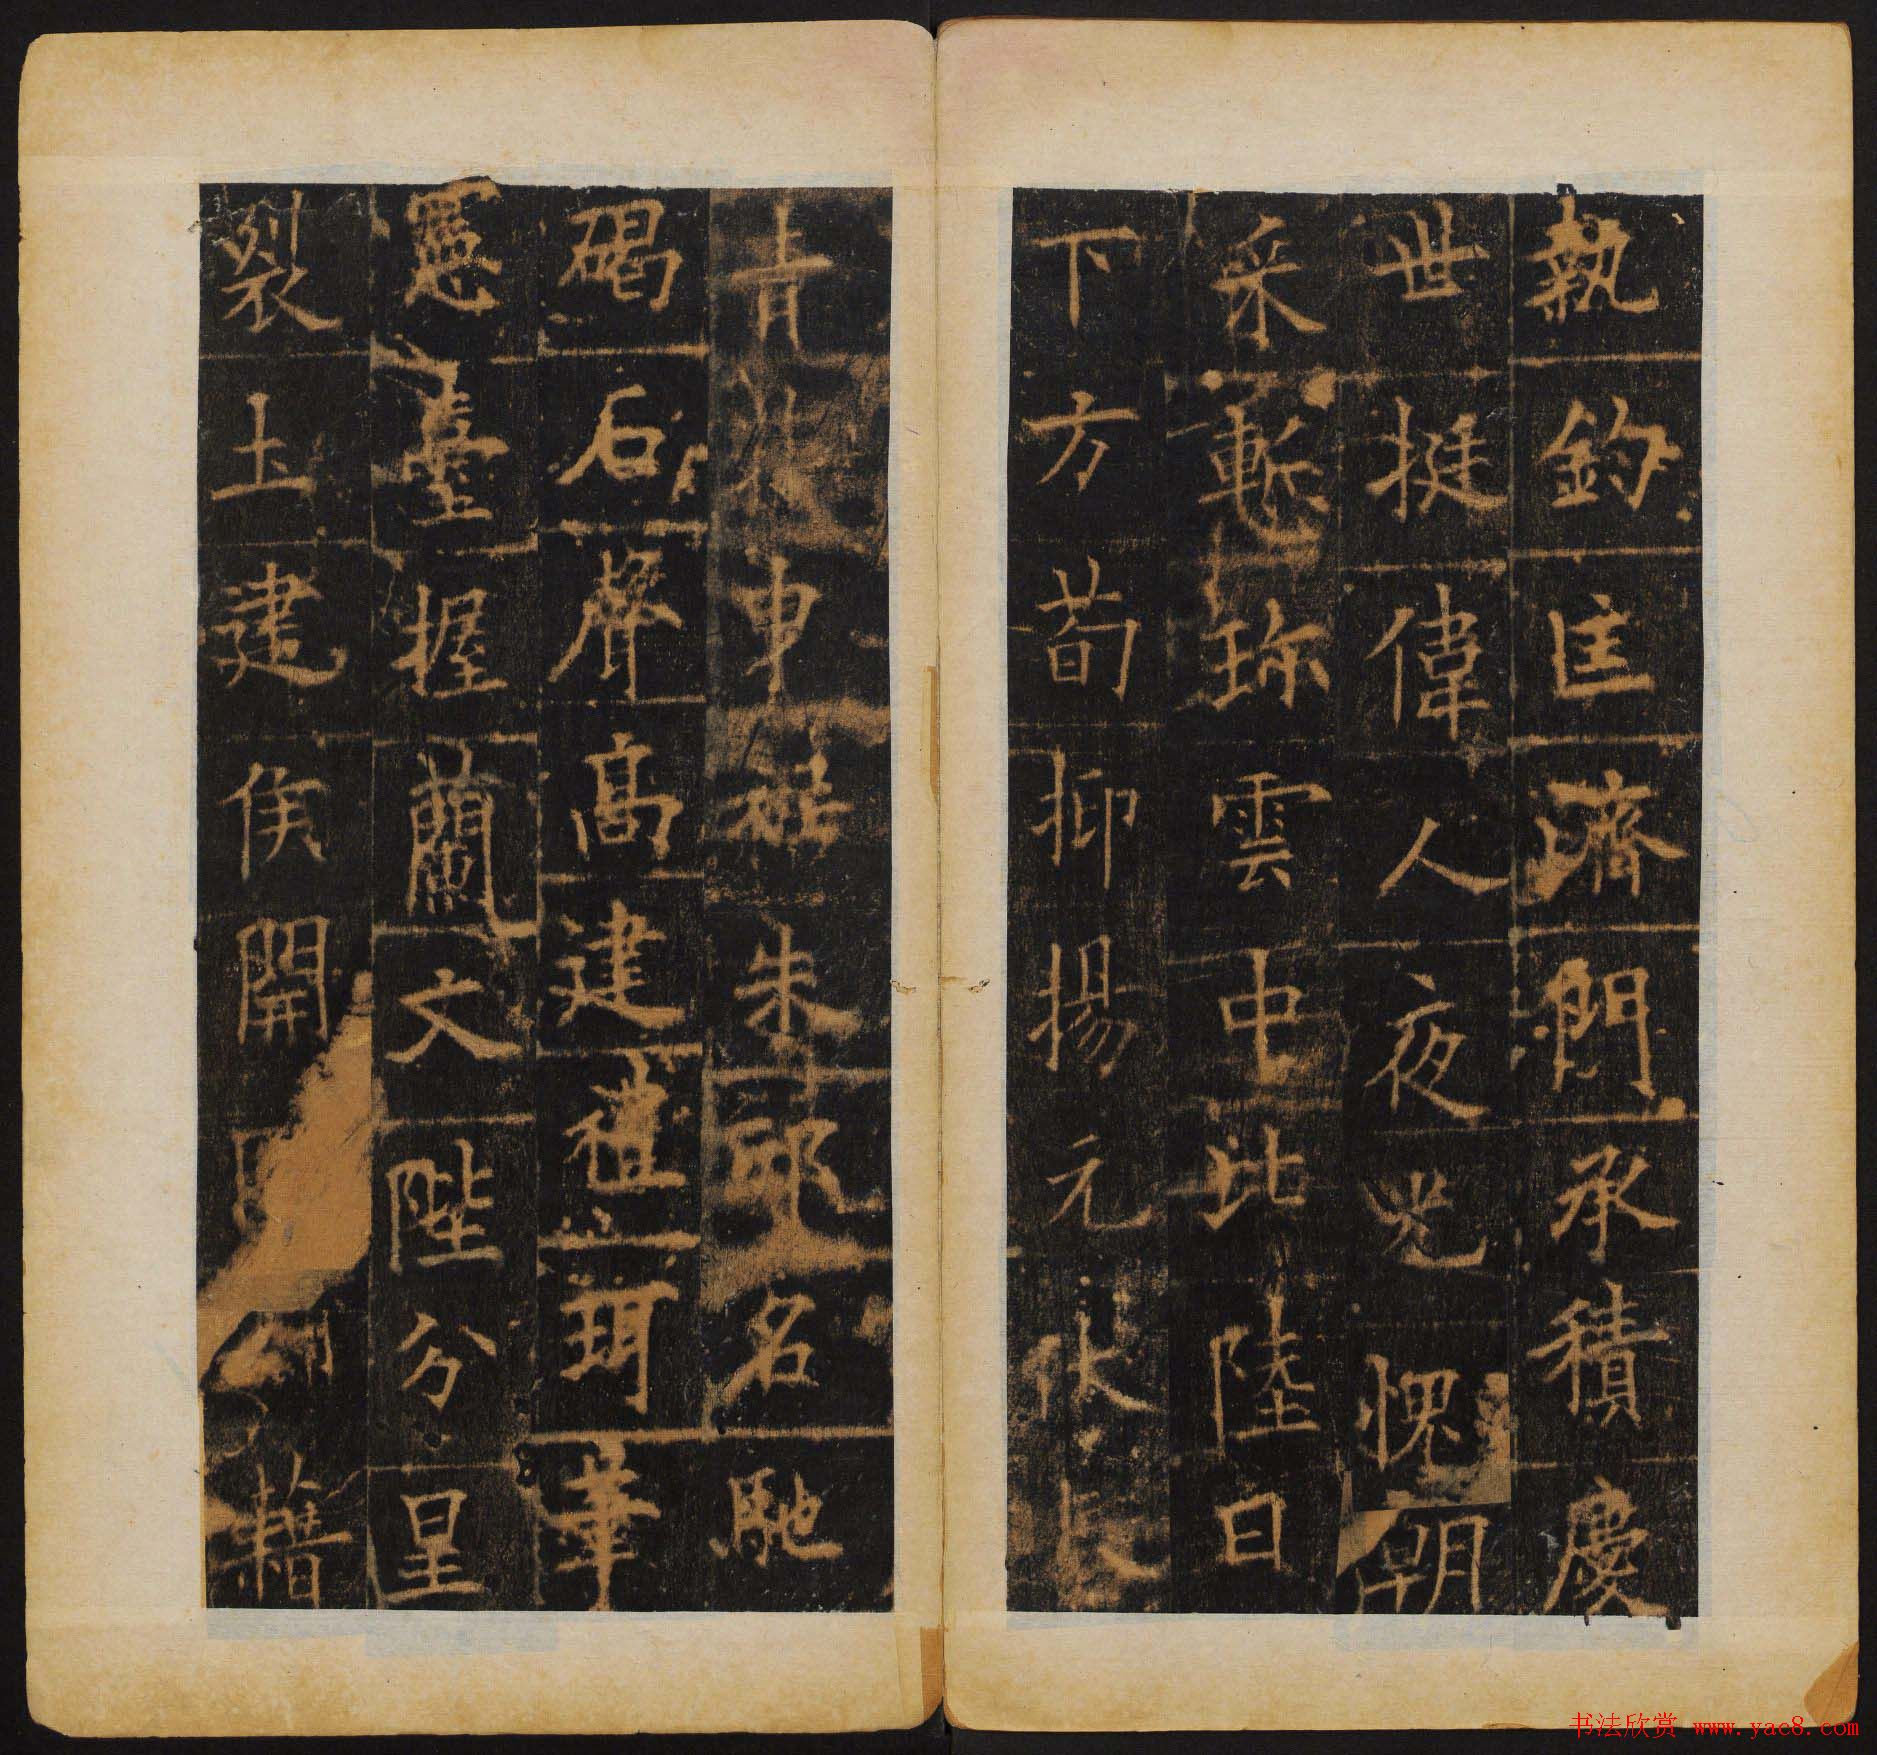 執鈞匡濟門承積慶
世挺偉人夜光愧朝
采慙珎雲中比陸日
下方荀抑揚元
青 東 朱邸名馳
碣石聲高建禮珥筆
憲臺握蘭文陛分星
裂土建侯開 藉
书法欣赏 www.yac8.com